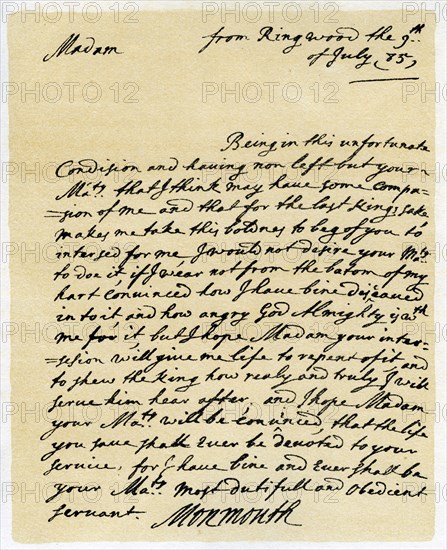 Madam
from Ringwood the 9th
of July (85)
Being in this unfortunate
Condision and having non left but your
Maty. that I think may have some compa-
=sion of me and that for the last Kings sake
makes me take this boldnes to beg of you to
intersed for me I would not desire your Maty
to doe it if I wear not from the batom of my
hart Convinced how I have bine disceaved
in to it and how angry God Almighty is wth
me for it but I hope Madam your inter-
=sesion will give me life to repent of it and
to shew the King how realy and truly I will
serve him hear after. and I hope Madam
your Maty. will be convinced that the life
you save shall Ever be devoted to your
service, for I have bine and Ever shall be
your Matys. most dutifull and obedient
servant. Monmouth